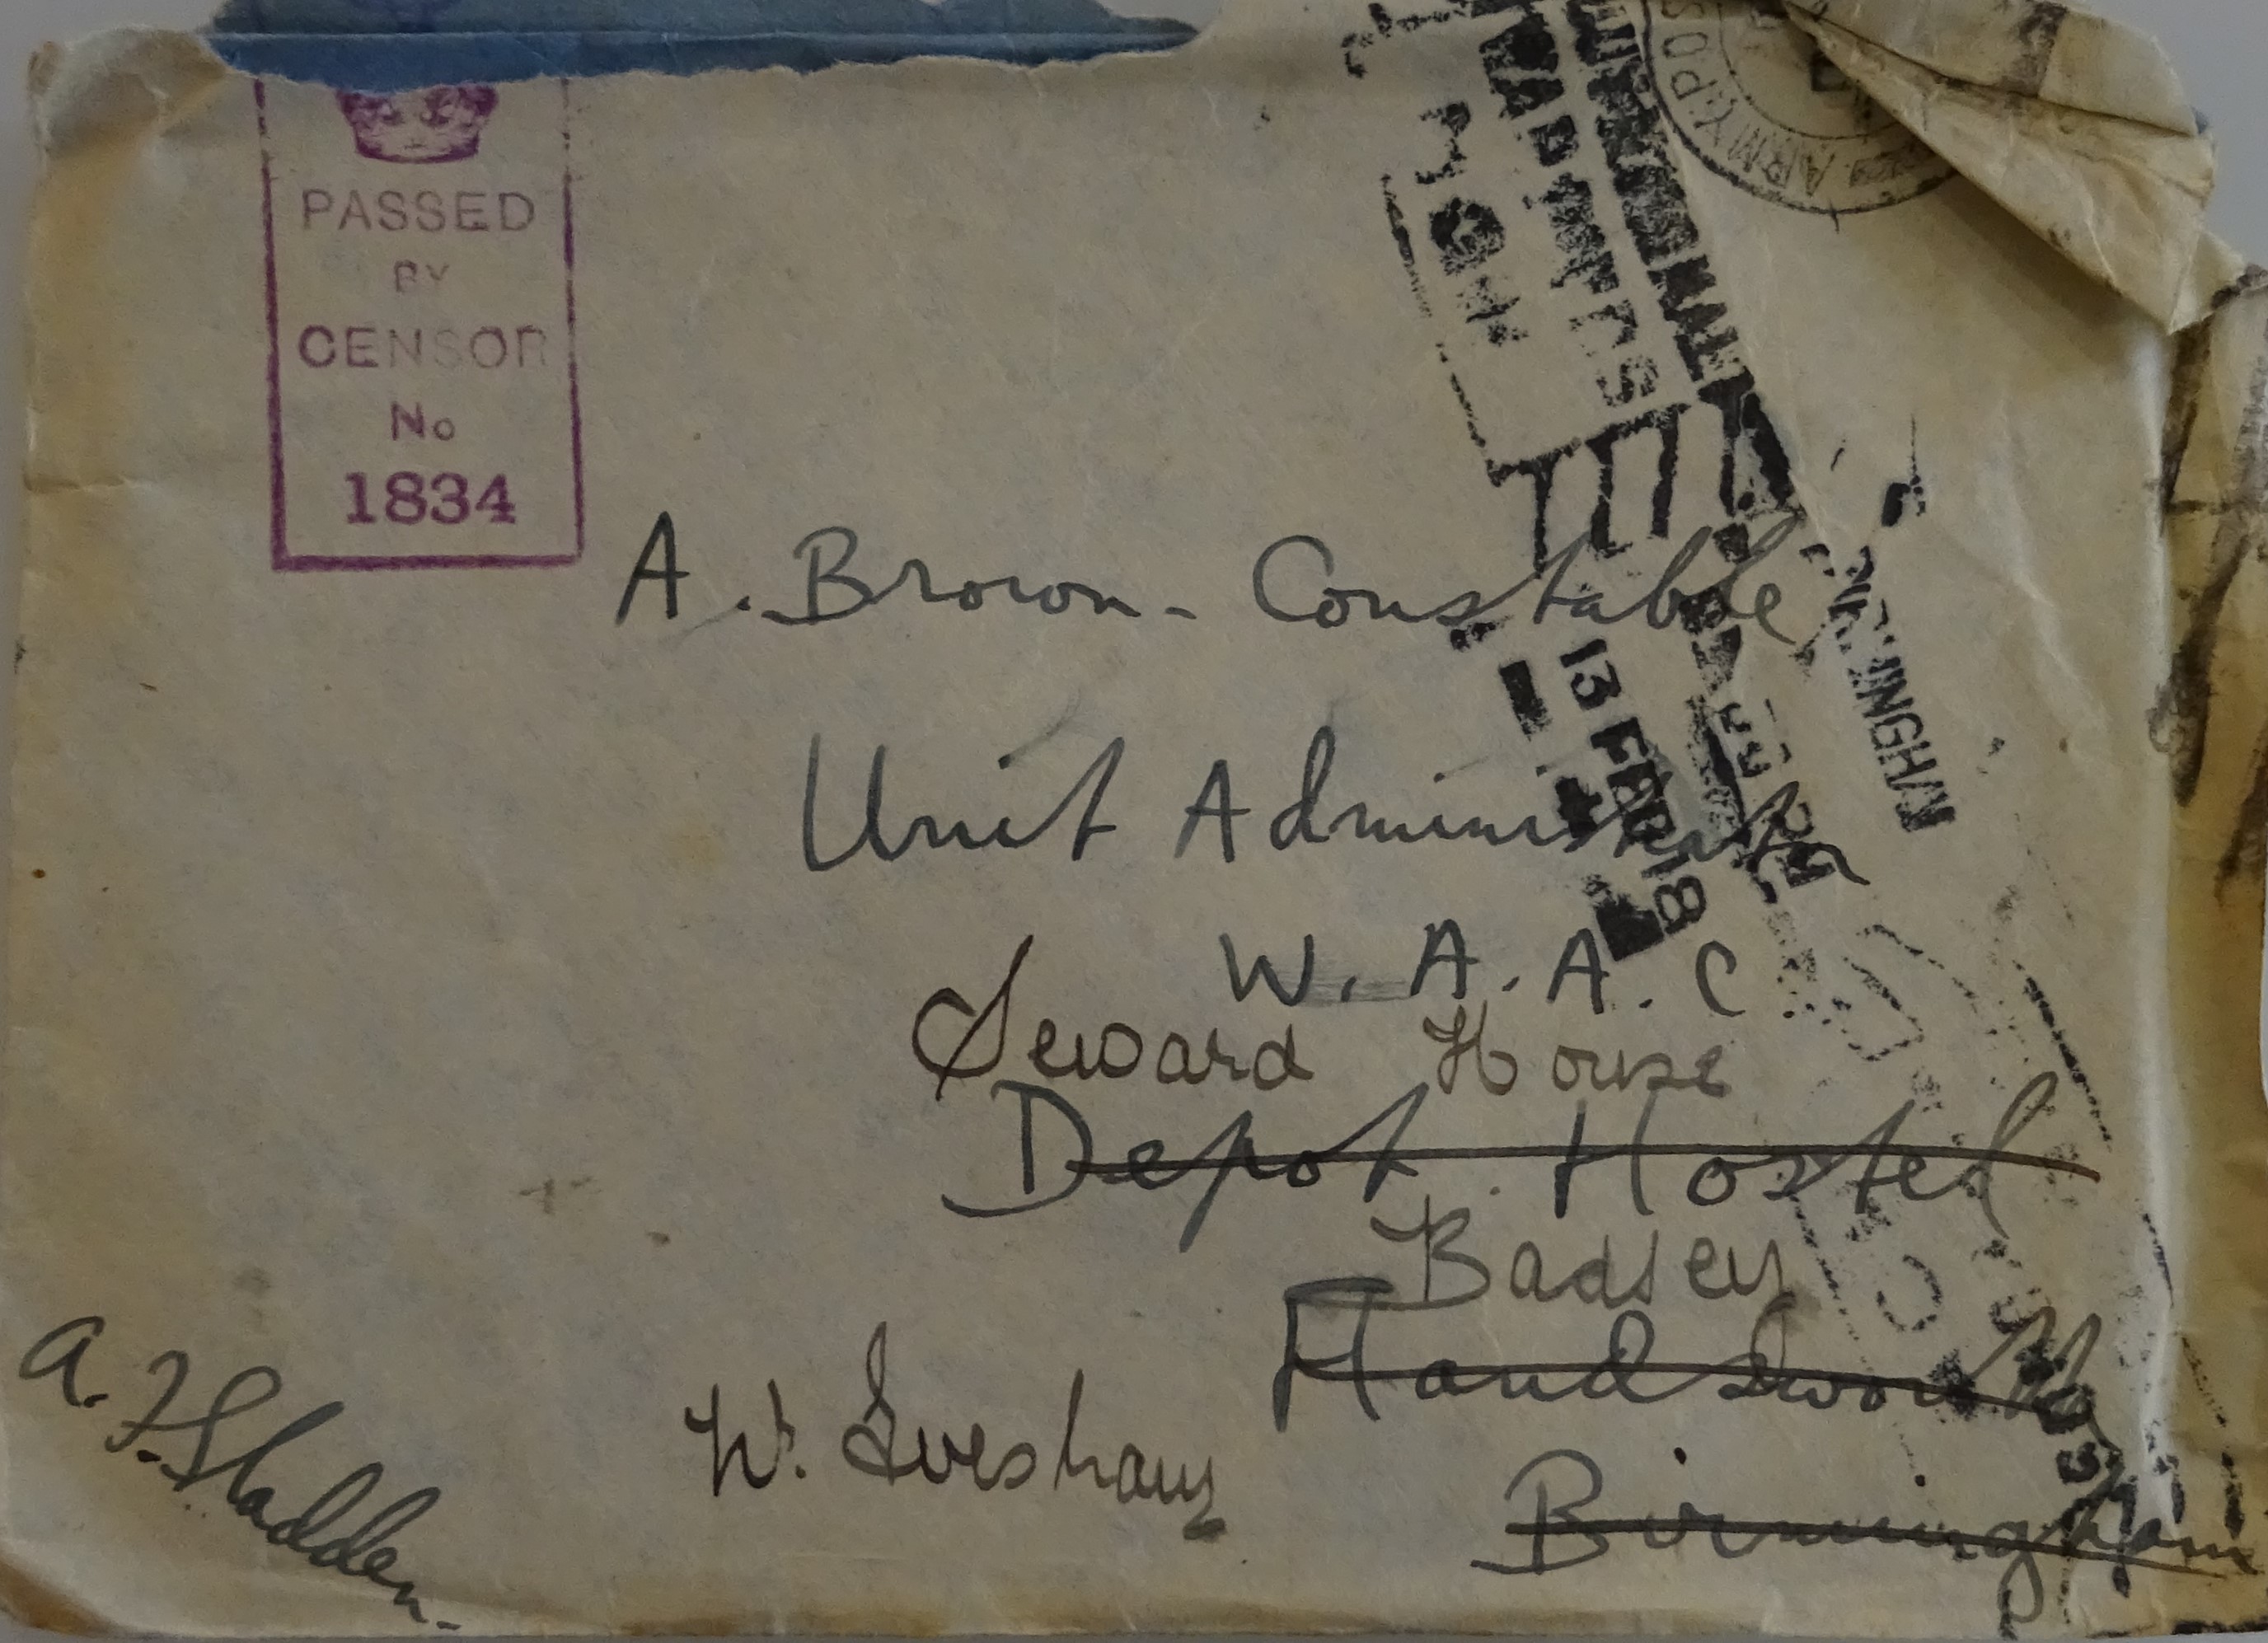 PASSED
BY
CENSOR
No
1834
ARMY POS
A. Brown-Constable
Unit Administrator
W. A. A. C
Seward House
Depot Hostel
Badsey
Handsworth
W. Evesham
Birmingham
A. F. Sladden.
13 FEB 18
BIRMINGHAM